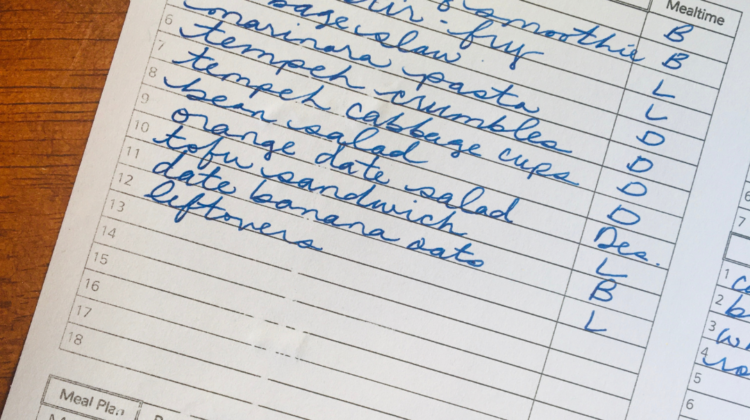 Mealtime
B
smoothie B
fry L
slaw L
6 marinara pasta D
7 tempeh crumbles D
8 tempeh cabbage cups D
9 bean salad D
10 orange date salad Des.
11 tofu sandwich L
12 date banana oats B
13 leftovers L
14
15
16
17
18
Meal Plan
6
7
1
2
3
4
5
6